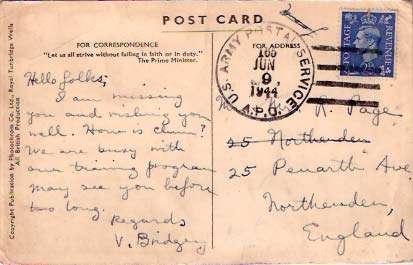 POST CARD
FOR CORRESPONDENCE
"Let us all strive without failing in faith or in duty."
The Prime Minister.
Hello folks,
I am missing
you and wishing you
well. How is
We are busy with
our training program
may see you before
too long.
Regards
V. Bridgey
Copyright Publication by Photochrom Co., Ltd., Royal Tunbridge Wells
All British Production
FOR ADDRESS
U.S. ARMY POSTAL SERVICE
JUN
9
1944
A.P.O.
POSTAGE
REVENUE
R. Page
25 Northenden
25 Penarth Ave.
Northenden,
England